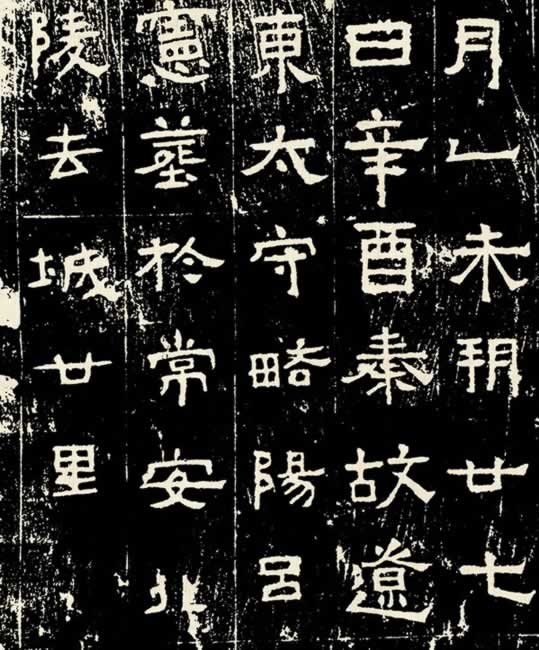 月乙未朔廿七
日辛酉秦故遼
東太守略陽呂
憲葬於常安北
陵去城廿里